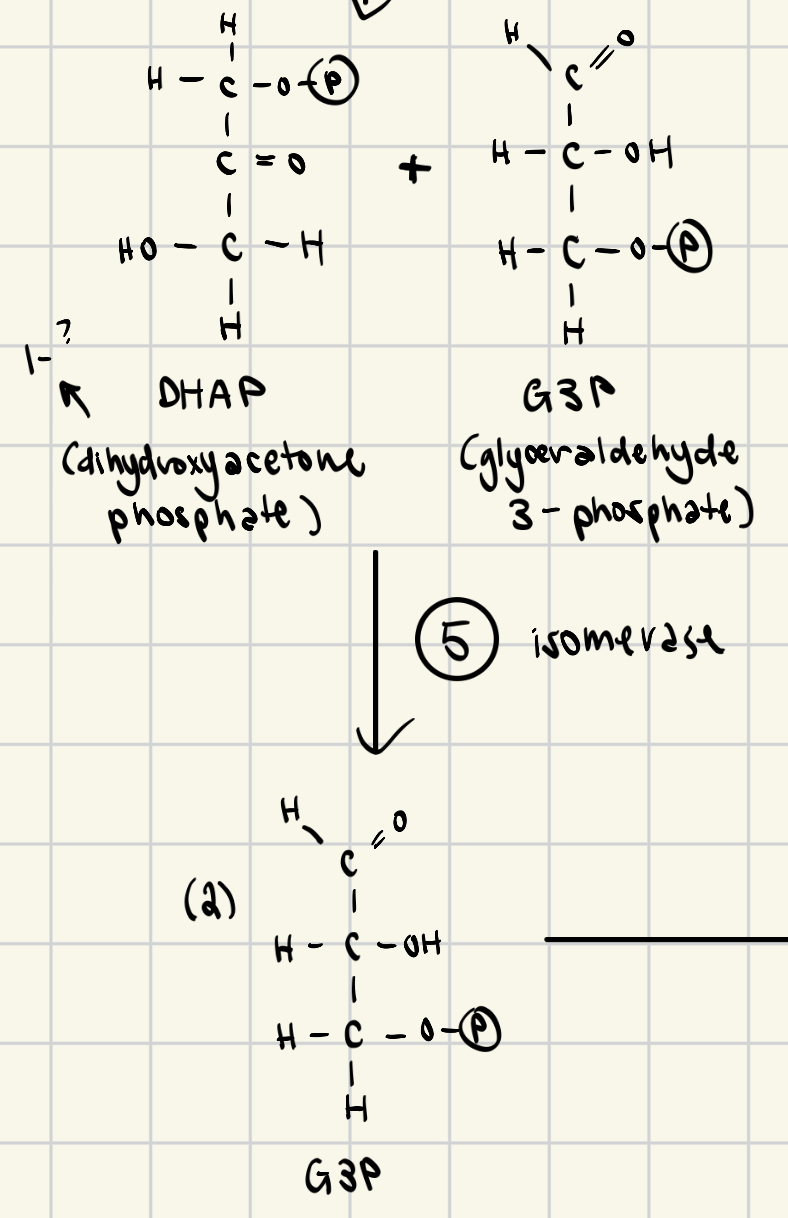 H
H - C - O - P
C = O
HO - C - H
H
+
H O
C
H - C - OH
H - C - O - P
H
1-?
DHAP
(dihydroxyacetone
phosphate)
G3P
(glyceraldehyde
3-phosphate)
5 isomerase
H O
C
(2)
H - C - OH
H - C - O - P
H
G3P